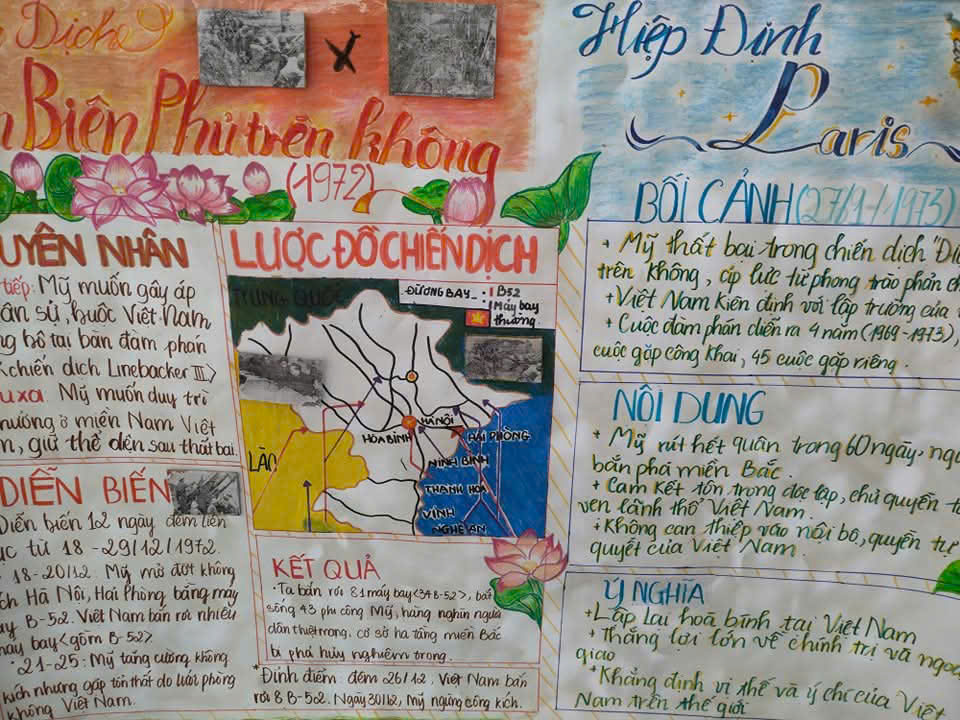 Dịch
Biên Phủ trên không
(1972)
UYÊN NHÂN
tiếp: Mỹ muốn gây áp
ân sự, buộc Việt Nam
ng bộ tại bàn đàm phán
<chiến dịch Linebacker II>
u xa: Mỹ muốn duy trì
hưởng ở miền Nam Việt
m, giữ thể diện sau thất bại.
DIỄN BIẾN
Diễn biến 12 ngày đêm liên
ục từ 18-29/12/1972.
18-20/12: Mỹ mở đợt không
ích Hà Nội, Hải Phòng bằng máy
ay B-52. Việt Nam bắn rơi nhiều
máy bay <gồm B-52>.
21-25: Mỹ tăng cường không
kích nhưng gặp tổn thất do lưới phòng
không Việt Nam.
LƯỢC ĐỒ CHIẾN DỊCH
TRUNG QUỐC
ĐƯỜNG BAY_: B52
Máy bay
thường.
LÀO
HÀ NỘI
HÒA BÌNH
HẢI PHÒNG
NINH BÌNH
THANH HOÁ
VINH
NGHỆ AN
KẾT QUẢ
• Ta bắn rơi 81 máy bay <34 B-52>, bắt
sống 43 phi công Mỹ, hàng nghìn người
dân thiệt mạng, cơ sở hạ tầng miền Bắc
bị phá hủy nghiêm trọng.
* Đỉnh điểm: đêm 26/12, Việt Nam bắn
rơi 8 B-52. Ngày 30/12, Mỹ ngừng công kích.
Hiệp Định
Paris
BỐI CẢNH (27/1/1973)
+ Mỹ thất bại trong chiến dịch "Đi
trên không, áp lực từ phong trào phản ch
+ Việt Nam kiên định với lập trường của
+ Cuộc đàm phán diễn ra 4 năm (1969-1973),
cuộc gặp công khai, 45 cuộc gặp riêng.
NỘI DUNG
+ Mỹ rút hết quân trong 60 ngày, ngừ
bắn phá miền Bắc.
+ Cam kết tôn trọng độc lập, chủ quyền, to
vẹn lãnh thổ Việt Nam.
+ Không can thiệp vào nội bộ, quyền tự
quyết của Việt Nam.
Ý NGHĨA
+ Lập lại hoà bình tại Việt Nam
+ Thắng lợi lớn về chính trị và ngoạ
giao
+ Khẳng định vị thế và ý chí của Việt
Nam trên thế giới